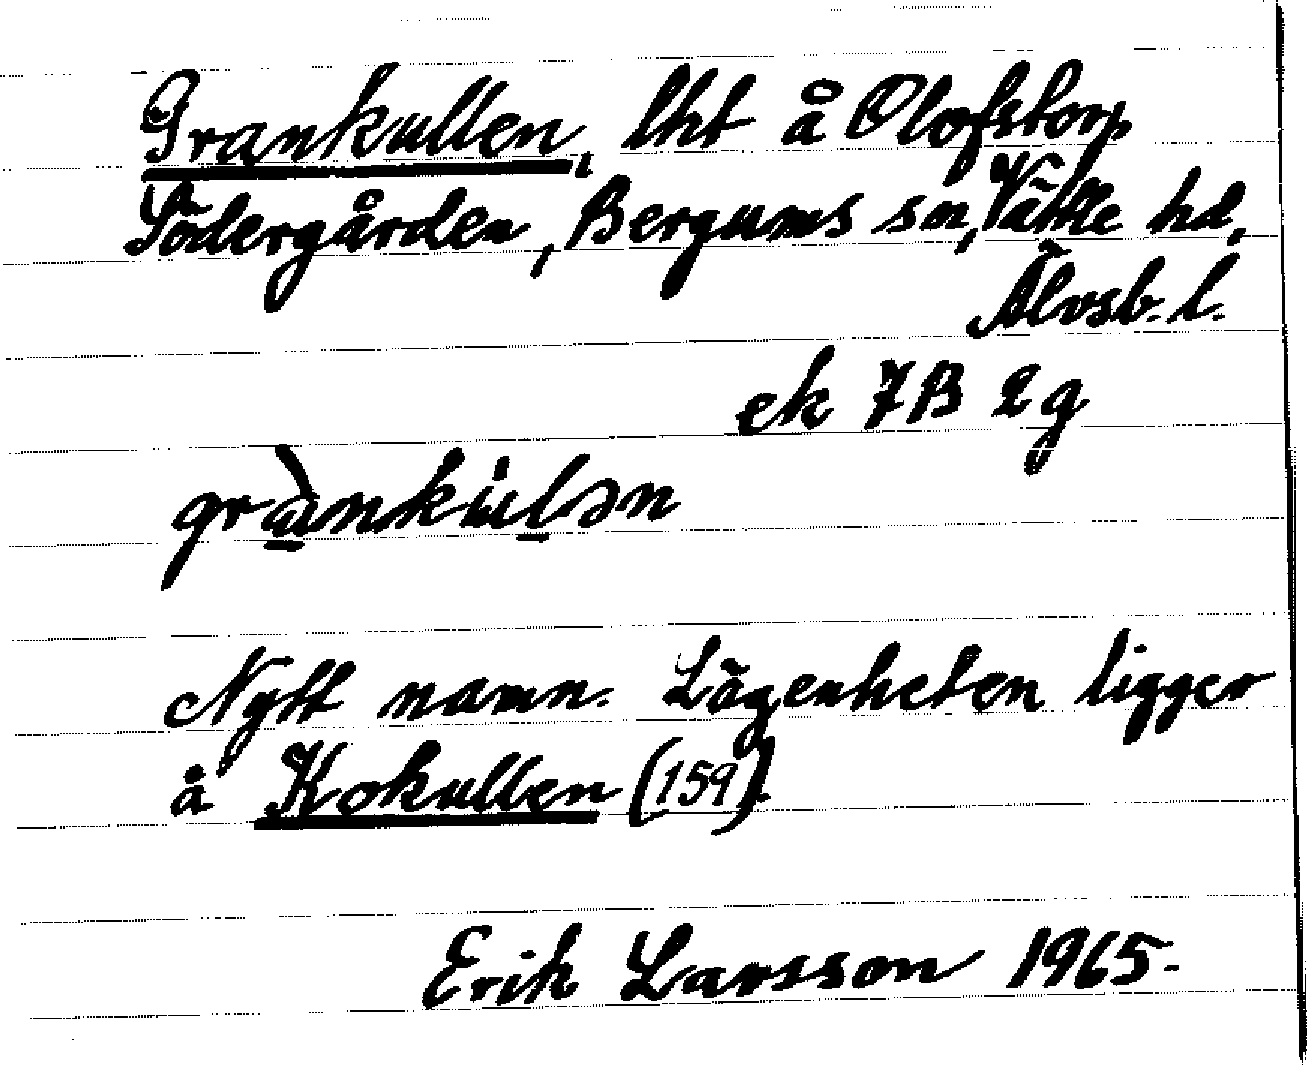 Grankullen, lht å Olofstorp
Södergården, Bergums sn, Vättle hd,
Älvsb. l.
ek 7B 2g
grànkùlən
Nytt namn. Lägenheten ligger
å Kokullen (159).
Erik Larsson 1965.